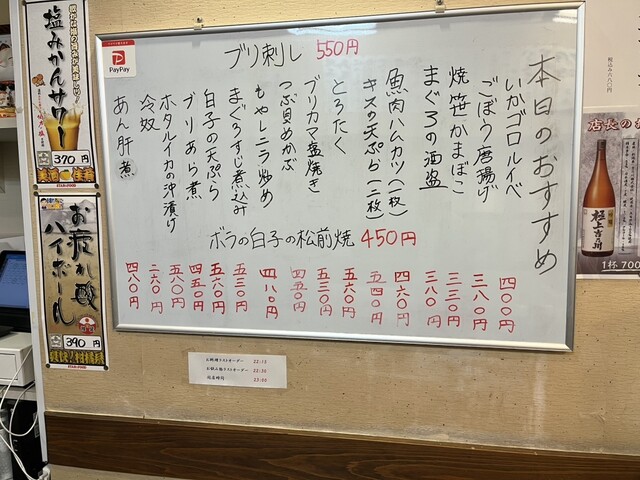 本日のおすすめ
いかゴロルイベ
四〇〇円
ごぼう唐揚げ
三八〇円
焼笹かまぼこ
三三〇円
まぐろの酒盗
三八〇円
魚肉ハムカツ(一枚)
四六〇円
キスの天ぷら(二枚)
五四〇円
とろたく
五六〇円
ブリカマ塩焼き
五三〇円
つぶ貝めかぶ
四五〇円
もやしニラ炒め
四八〇円
まぐろすじ煮込み
五三〇円
白子の天ぷら
五六〇円
ブリあら煮
四五〇円
ホタルイカの沖漬け
五八〇円
冷奴
二六〇円
あん肝煮
四八〇円
ブリ刺し 550円
ボラの白子の松前焼 450円
PayPay
塩みかんサワー
370円
お疲れ酸
ハイボール
390円
お料理ラストオーダー 22:15
お飲み物ラストオーダー 22:30
閉店時刻 23:00
店長の
極上吉乃川
1杯700